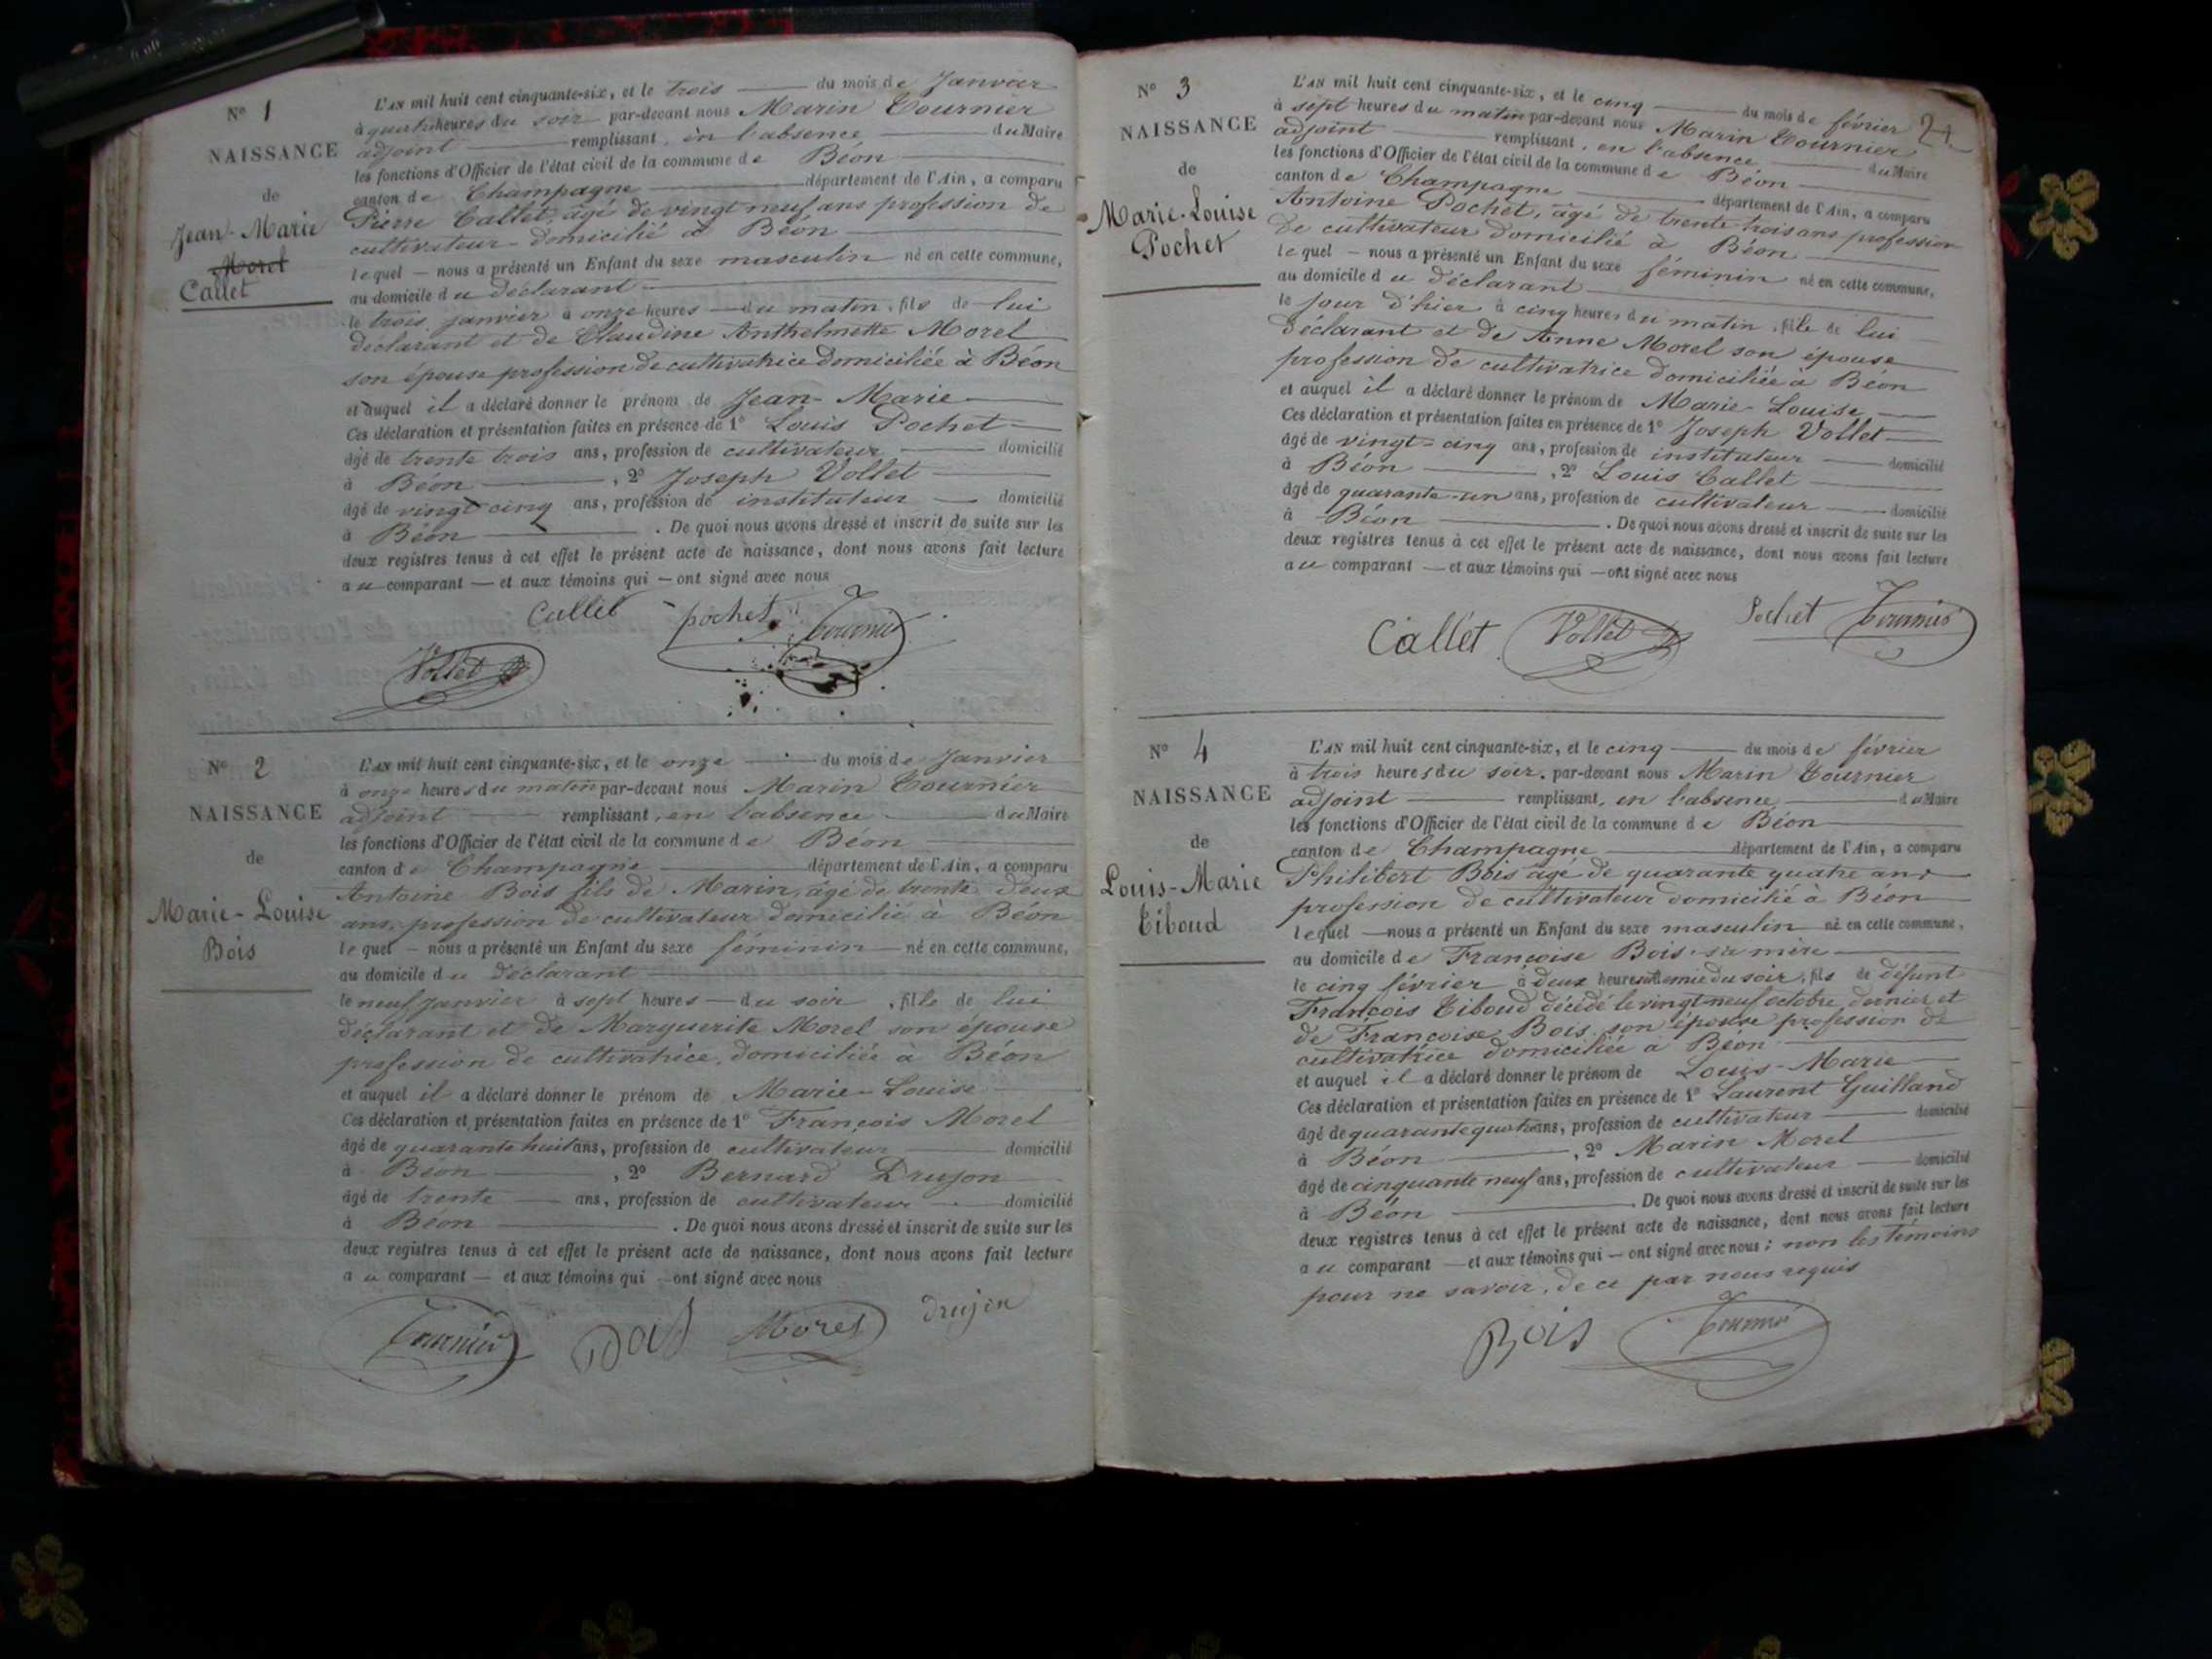 Nº 1
NAISSANCE
de
Jean-Marie
Morel
Callet
L'AN mil huit cent cinquante-six, et le trois du mois de Janvier
à quatre heures du soir par-devant nous Marin Tournier
adjoint remplissant, en l'absence du Maire
les fonctions d'Officier de l'état civil de la commune de Béon
canton de Champagne département de l'Ain, a comparu
Pierre Callet, âgé de vingt neuf ans profession de
cultivateur domicilié à Béon
lequel — nous a présenté un Enfant du sexe masculin né en cette commune,
au domicile du déclarant
le trois janvier à onze heures du matin, fils de lui
déclarant et de Claudine Anthelmette Morel
son épouse profession de cultivatrice domiciliée à Béon
et auquel il a déclaré donner le prénom de Jean-Marie
Ces déclaration et présentation faites en présence de 1º Louis Pochet
âgé de trente trois ans, profession de cultivateur domicilié
à Béon, 2º Joseph Vollet
âgé de vingt cinq ans, profession de instituteur domicilié
à Béon. De quoi nous avons dressé et inscrit de suite sur les
deux registres tenus à cet effet le présent acte de naissance, dont nous avons fait lecture
au comparant — et aux témoins qui — ont signé avec nous
Callet pochet Tournier
Vollet
Nº 2
NAISSANCE
de
Marie-Louise
Bois
L'AN mil huit cent cinquante-six, et le onze du mois de Janvier
à onze heures du matin par-devant nous Marin Tournier
adjoint remplissant, en l'absence du Maire
les fonctions d'Officier de l'état civil de la commune de Béon
canton de Champagne département de l'Ain, a comparu
Antoine Bois fils de Marin, âgé de trente deux
ans, profession de cultivateur domicilié à Béon
lequel — nous a présenté un Enfant du sexe féminin né en cette commune,
au domicile du déclarant
le neuf janvier à sept heures — du soir, fille de lui
déclarant et de Marguerite Morel son épouse
profession de cultivatrice, domiciliée à Béon
et auquel il a déclaré donner le prénom de Marie-Louise
Ces déclaration et présentation faites en présence de 1º François Morel
âgé de quarante huit ans, profession de cultivateur domicilié
à Béon, 2º Bernard Drujon
âgé de trente ans, profession de cultivateur domicilié
à Béon. De quoi nous avons dressé et inscrit de suite sur les
deux registres tenus à cet effet le présent acte de naissance, dont nous avons fait lecture
au comparant — et aux témoins qui — ont signé avec nous
Tournier Bois Morel Drujon
24
Nº 3
NAISSANCE
de
Marie-Louise
Pochet
L'AN mil huit cent cinquante-six, et le cinq du mois de février
à sept heures du matin par-devant nous Marin Tournier
adjoint remplissant, en l'absence du Maire
les fonctions d'Officier de l'état civil de la commune de Béon
canton de Champagne département de l'Ain, a comparu
Antoine Pochet, âgé de trente trois ans profession
de cultivateur domicilié à Béon
lequel — nous a présenté un Enfant du sexe féminin né en cette commune,
au domicile du déclarant
le jour d'hier à cinq heures du matin, fille de lui
déclarant et de Anne Morel son épouse
profession de cultivatrice domiciliée à Béon
et auquel il a déclaré donner le prénom de Marie-Louise
Ces déclaration et présentation faites en présence de 1º Joseph Vollet
âgé de vingt-cinq ans, profession de instituteur domicilié
à Béon, 2º Louis Callet
âgé de quarante-un ans, profession de cultivateur domicilié
à Béon. De quoi nous avons dressé et inscrit de suite sur les
deux registres tenus à cet effet le présent acte de naissance, dont nous avons fait lecture
au comparant — et aux témoins qui — ont signé avec nous
Callet Vollet Pochet Tournier
Nº 4
NAISSANCE
de
Louis-Marie
Tiboud
L'AN mil huit cent cinquante-six, et le cinq du mois de février
à trois heures du soir, par-devant nous Marin Tournier
adjoint remplissant, en l'absence du Maire
les fonctions d'Officier de l'état civil de la commune de Béon
canton de Champagne département de l'Ain, a comparu
Philibert Bois âgé de quarante quatre ans
profession de cultivateur domicilié à Béon
lequel — nous a présenté un Enfant du sexe masculin né en cette commune,
au domicile de Françoise Bois sa mère
le cinq février à deux heures et demie du soir, fils de défunt
François Tiboud décédé le vingt-neuf octobre dernier et
de Françoise Bois son épouse profession de
cultivatrice domiciliée à Béon
et auquel il a déclaré donner le prénom de Louis-Marie
Ces déclaration et présentation faites en présence de 1º Laurent Guilland
âgé de quarante quatre ans, profession de cultivateur domicilié
à Béon, 2º Marin Morel
âgé de cinquante neuf ans, profession de cultivateur domicilié
à Béon. De quoi nous avons dressé et inscrit de suite sur les
deux registres tenus à cet effet le présent acte de naissance, dont nous avons fait lecture
au comparant — et aux témoins qui — ont signé avec nous; non les témoins
pour ne savoir, de ce par nous requis
Bois Tournier